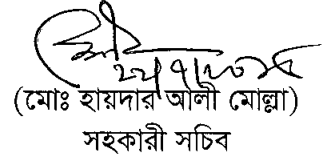 ২২/৭/২০১৫
(মোঃ হায়দার আলী মোল্লা)
সহকারী সচিব